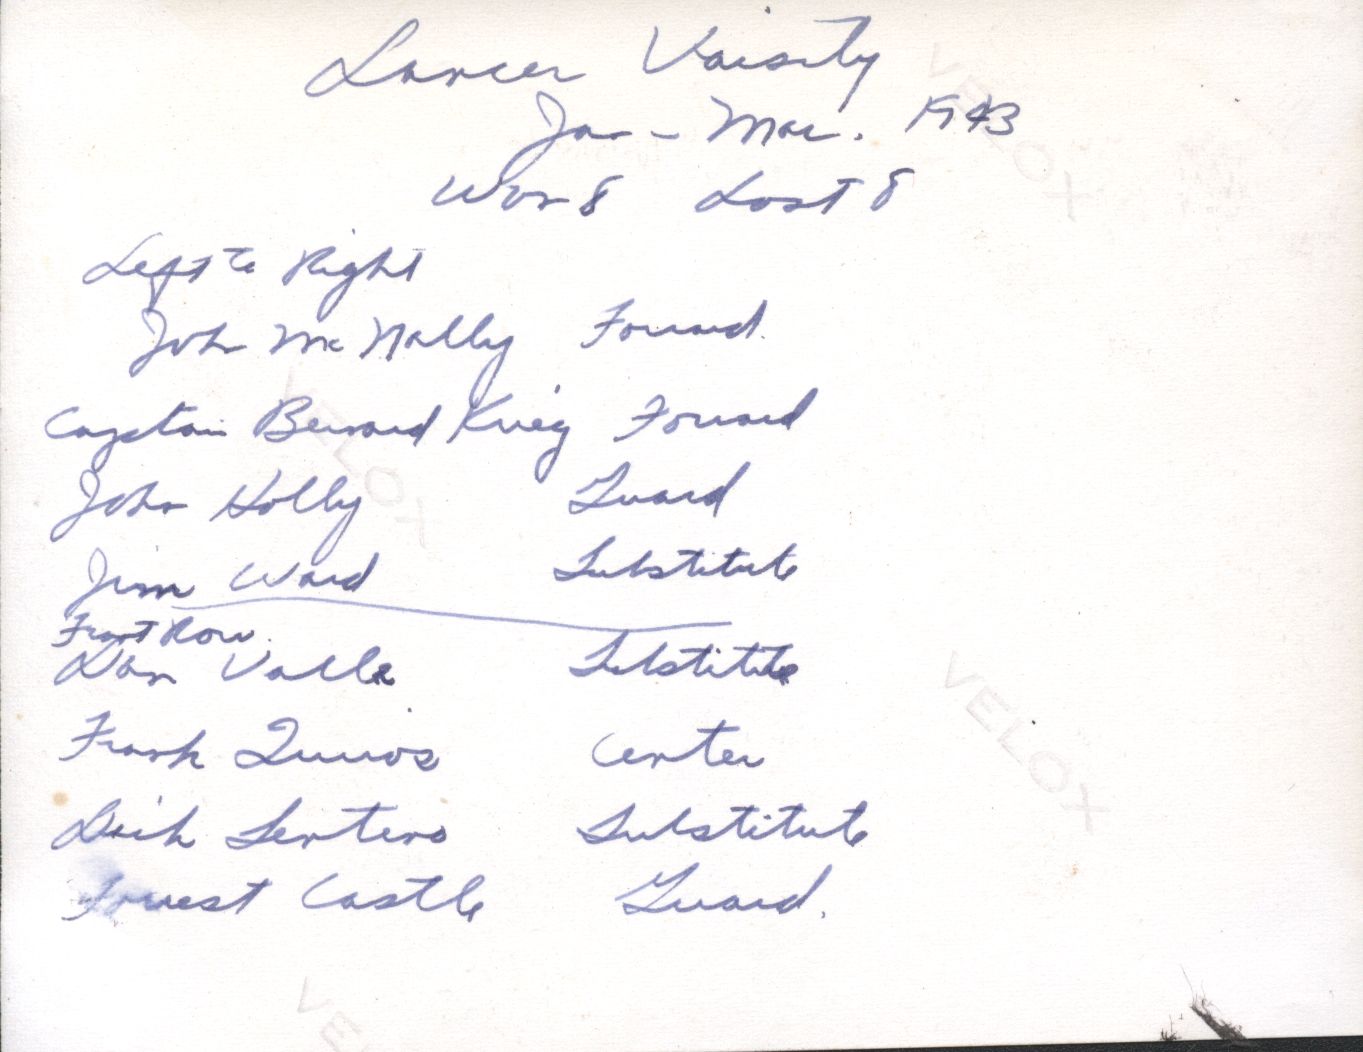 Lancer Varsity
Jan - Mar. 1943
Won 8 Lost 8
Left to Right
John McNally Forward.
Captain Bernard Krieg Forward
John Holly Guard
Jim Ward Substitute
Front Row.
Don Valle Substitute
Frank Quiros Center
Dick Substitute
Forrest Castle Guard.
VELOX
VELOX
VELOX
VE